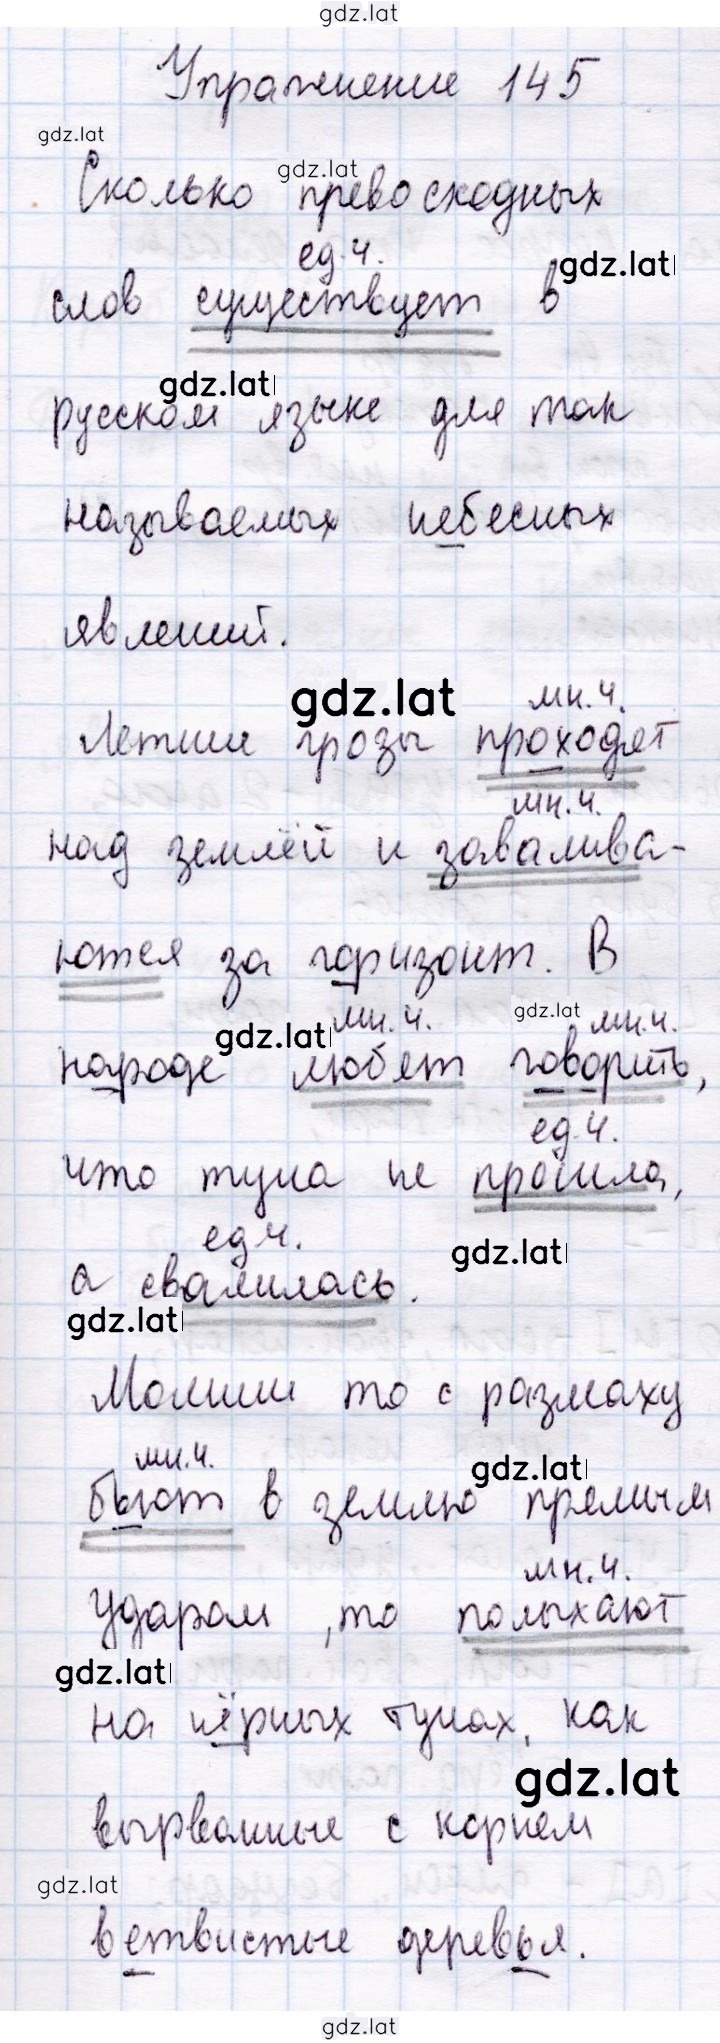 gdz.lat
Упражнение 145
gdz.lat
gdz.lat
Сколько превосходных
ед.ч.
gdz.lat
слов существует в
gdz.lat
русском языке для так
называемых небесных
явлений.
gdz.lat
мн.ч.
Летние грозы проходят
мн.ч.
над землёй и завалива-
ются за горизонт. В
gdz.lat
gdz.lat мн.ч. мн.ч.
народе любят говорить,
ед.ч.
что туча не прошла,
ед.ч.
gdz.lat
а свалилась.
gdz.lat
Молнии то с размаху
мн.ч.
gdz.lat
бьют в землю прямым
мн.ч.
ударом, то полыхают
gdz.lat
на чёрных тучах, как
gdz.lat
вырванные с корнем
gdz.lat
ветвистые деревья.
gdz.lat